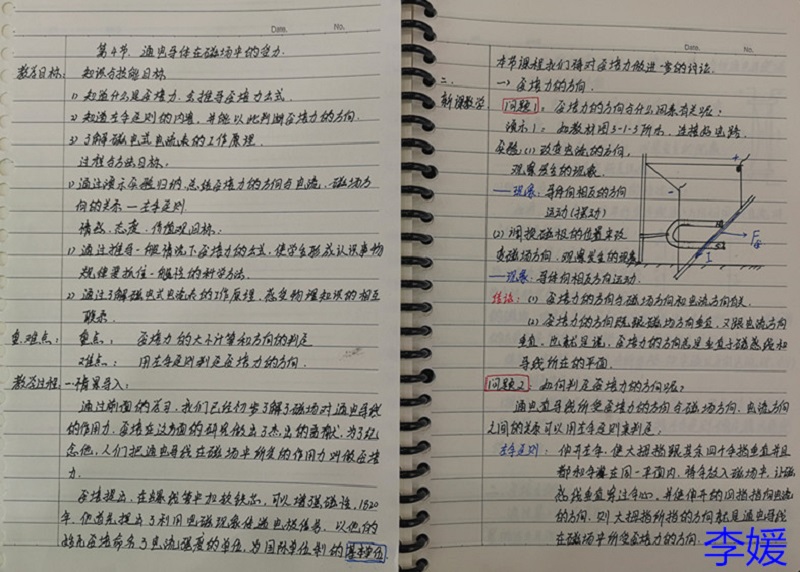 Date. No.
第4节 通电导体在磁场中的受力
教学目标: 知识与技能目标
1) 知道什么是安培力,会推导安培力公式.
2) 知道左手定则的内容,并能以此判断安培力的方向.
3) 了解磁电式电流表的工作原理.
过程与方法目标:
1) 通过演示实验归纳,总结安培力的方向与电流,磁场方
向的关系—左手定则
情感,态度,价值观目标:
1) 通过推导一般情况下安培力的公式,使学生形成认识事物
规律要抓住一般性的科学方法.
2) 通过了解磁电式电流表的工作原理,感受物理知识的相互
联系.
重.难点: 重点: 安培力的大小计算和方向的判定
难点: 用左手定则判定安培力的方向.
教学过程: 一.情景导入:
通过前面的学习,我们已经初步了解了磁场对通电导线
的作用力.安培在这方面的研究做出了杰出的贡献,为了纪
念他,人们把通电导线在磁场中所受的作用力叫做安培
力.
安培提出,在螺线管中加软铁芯,可以增强磁性,1820
年,他首先提出了利用电磁现象传递电报信号.以他的
姓氏安培命名了电流强度的单位,为国际单位制的基本单位
Date. No.
本节课程我们将对安培力做进一步的讨论.
二.
新课教学
一) 安培力的方向.
问题1: 安培力的方向与什么因素有关呢?
演示1: 如教材图3-1-3所示,连接好电路.
实验:(1) 改变电流的方向,
观察发生的现象.
—现象:导体向相反的方向
运动(摆动)
(2) 调换磁极的位置来改
变磁场方向,观察发生的现象
—现象:导体向相反方向运动.
结论:(1) 安培力的方向与磁场方向和电流方向有关.
(2) 安培力的方向既跟磁场方向垂直,又跟电流方向
垂直,也就是说,安培力的方向总是垂直于磁感线和
导线所在的平面.
+
-
F安
I
问题2: 如何判定安培力的方向呢?
通电直导线所受安培力的方向与磁场方向.电流方向
之间的关系可以用左手定则来判定:
左手定则: 伸开左手,使大拇指跟其余四个手指垂直并且
都和手掌在同一平面内,将手放入磁场中,让磁
感线垂直穿过手心,并使伸开的四指指向电流
的方向.则大拇指所指的方向就是通电导线
在磁场中所受安培力的方向.
李媛